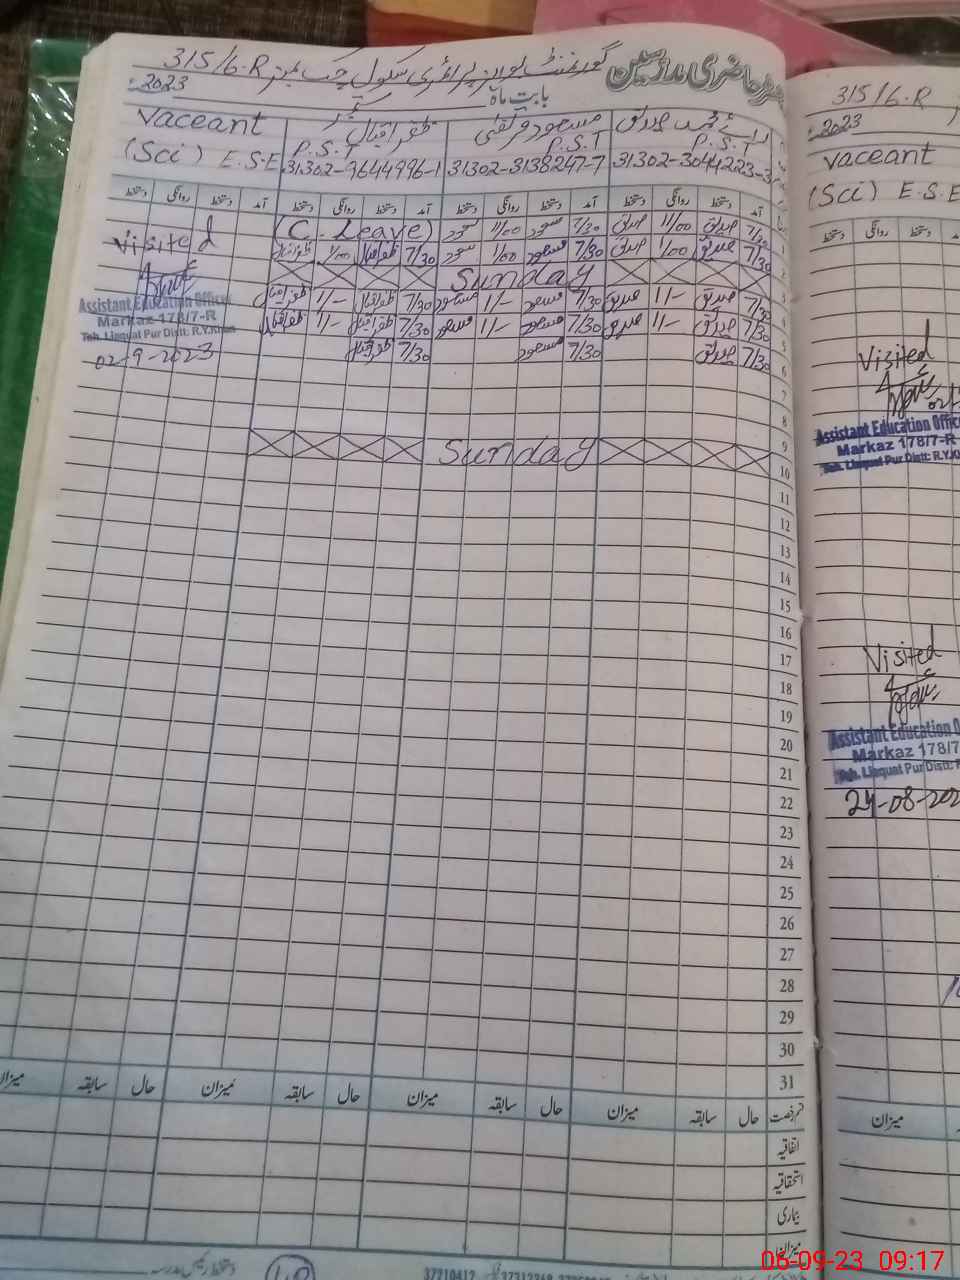 رجسٹر حاضری مدرسین گورنمنٹ بوائز پرائمری سکول چک نمبر 315/6.R
بابت ماہ ستمبر 2023
محمد صدیق
P.S.T
31302-3044223-3
مسعود
P.S.T
31302-3138247-7
ظفر اقبال
P.S.T
31302-9644996-1
Vaceant
(Sci) E.S.E
آمد دستخط روانگی دستخط آمد دستخط روانگی دستخط آمد دستخط روانگی دستخط آمد دستخط روانگی دستخط
1 7/30 صدیق 11/00 صدیق 7/30 مسعود 11/00 مسعود (C. Leave)
2 7/30 صدیق 1/00 صدیق 7/30 مسعود 1/00 مسعود 7/30 ظفر اقبال 1/00 ظفر اقبال
3 Sunday
4 7/30 صدیق 1/- صدیق 7/30 مسعود 1/- مسعود 7/30 ظفر اقبال 1/- ظفر اقبال
5 7/30 صدیق 1/- صدیق 7/30 مسعود 1/- مسعود 7/30 ظفر اقبال 1/- ظفر اقبال
6 7/30 صدیق 7/30 مسعود 7/30 ظفر اقبال
Visited
Assistant Education Officer
Markaz 178/7-R
Teh. Liaquat Pur Distt: R.Y.Khan
02-9-2023
7
8
9
10 Sunday
11
12
13
14
15
16
17
18
19
20
21
22
23
24
25
26
27
28
29
30
31
قسم رخصت حال سابقہ میزان حال سابقہ میزان حال سابقہ میزان حال سابقہ میزان
اتفاقیہ
استحقاقیہ
بیماری
میزان
دستخط رئیس مدرسہ
315/6.R
2023
Vaceant
(Sci) E.S.E
دستخط روانگی دستخط
Visited
Assistant Education Offic
Markaz 178/7-R
Teh. Liaquat Pur Distt: R.Y.K
Visited
Assistant Education O
Markaz 178/7
Teh. Liaquat Pur Distt:
24-08-202
میزان
06-09-23 09:17